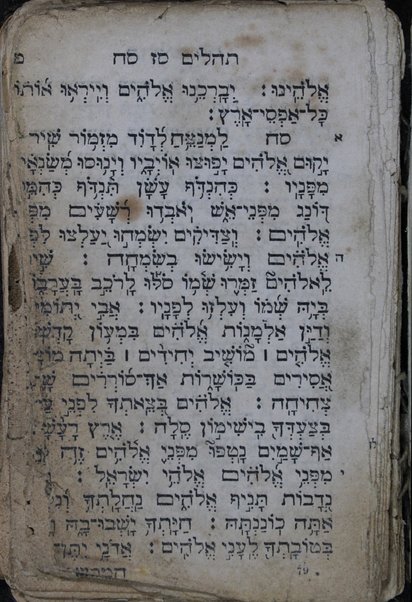 תהלים סז סח
אֱלֹהֵינוּ: יְבָרְכֵנוּ אֱלֹהִים וְיִירְאוּ אוֹתוֹ
כׇּל־אַפְסֵי־אָרֶץ:
א סח לַמְנַצֵּחַ לְדָוִד מִזְמוֹר שִׁיר
יָקוּם אֱלֹהִים יָפוּצוּ אוֹיְבָיו וְיָנוּסוּ מְשַׂנְאָיו
מִפָּנָיו: כְּהִנְדֹּף עָשָׁן תִּנְדֹּף כְּהִמֵּס
דּוֹנַג מִפְּנֵי־אֵשׁ יֹאבְדוּ רְשָׁעִים
אֱלֹהִים: וְצַדִּיקִים יִשְׂמְחוּ יַעַלְצוּ
ה אֱלֹהִים וְיָשִׂישׂוּ בְשִׂמְחָה:
לֵאלֹהִים זַמְּרוּ שְׁמוֹ סֹלּוּ לָרֹכֵב בָּעֲרָבוֹת
בְּיָהּ שְׁמוֹ וְעִלְזוּ לְפָנָיו: אֲבִי יְתוֹמִים
וְדַיַּן אַלְמָנוֹת אֱלֹהִים בִּמְעוֹן
אֱלֹהִים ׀ מוֹשִׁיב יְחִידִים ׀ בַּיְתָה
אֲסִירִים בַּכּוֹשָׁרוֹת אַךְ־סוֹרְרִים
צְחִיחָה: אֱלֹהִים בְּצֵאתְךָ לִפְנֵי
בְּצַעְדְּךָ בִישִׁימוֹן סֶלָה: אֶרֶץ רָעָשָׁה
אַף־שָׁמַיִם נָטְפוּ מִפְּנֵי אֱלֹהִים זֶה
י מִפְּנֵי אֱלֹהִים אֱלֹהֵי יִשְׂרָאֵל:
נְדָבוֹת תָּנִיף אֱלֹהִים נַחֲלָתְךָ
אַתָּה כוֹנַנְתָּהּ: חַיָּתְךָ יָשְׁבוּ־בָהּ
בְּטוֹבָתְךָ לֶעָנִי אֱלֹהִים: אֲדֹנָי